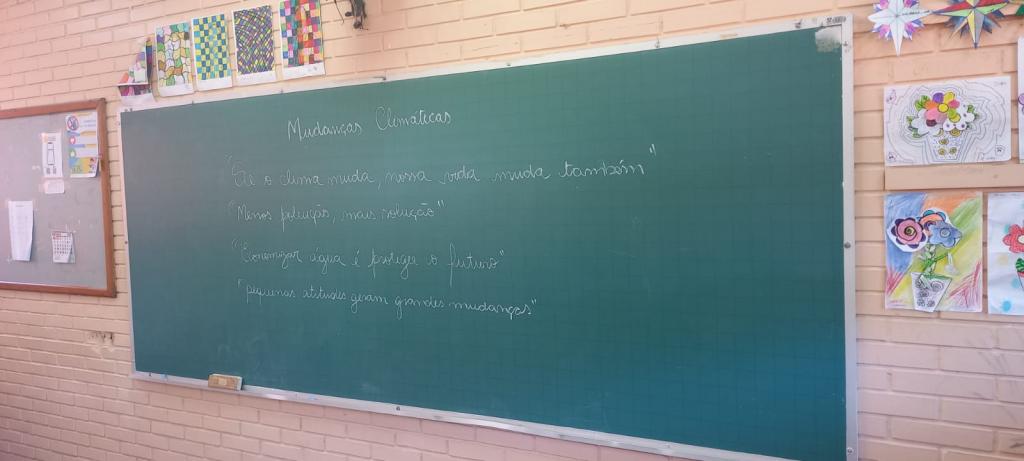 Mudanças Climáticas
"Se o clima muda, nossa vida muda também"
"Menos poluição, mais solução"
"Economizar água é proteger o futuro"
"pequenas atitudes geram grandes mudanças"